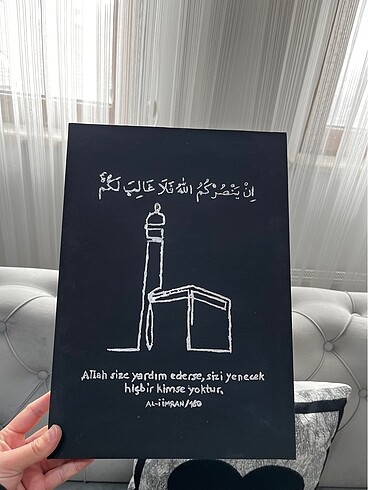 إِنْ يَنْصُرْكُمُ اللّٰهُ فَلَا غَالِبَ لَكُمْ
Allah size yardım ederse, sizi yenecek
hiçbir kimse yoktur.
AL-İ İMRAN/160